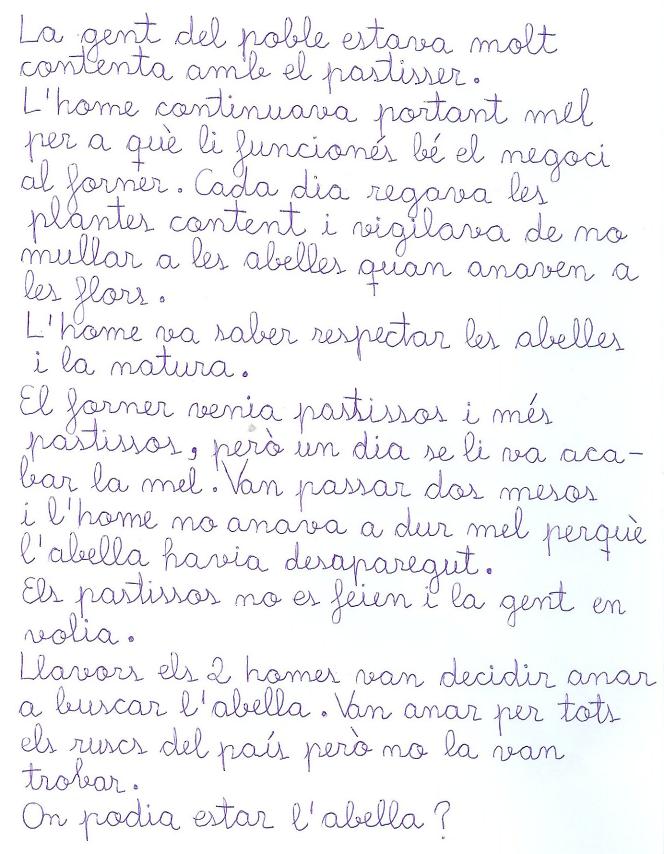 La gent del poble estava molt
contenta amb el pastisser.
L'home continuava portant mel
per a què li funcionés bé el negoci
al forner. Cada dia regava les
plantes content i vigilava de no
mullar a les abelles quan anaven a
les flors.
L'home va saber respectar les abelles
i la natura.
El forner venia pastissos i més
pastissos, però un dia se li va aca-
bar la mel. Van passar dos mesos
i l'home no anava a dur mel perquè
l'abella havia desaparegut.
Els pastissos no es feien i la gent en
volia.
Llavors els 2 homes van decidir anar
a buscar l'abella. Van anar per tots
els ruscs del país però no la van
trobar.
On podia estar l'abella?